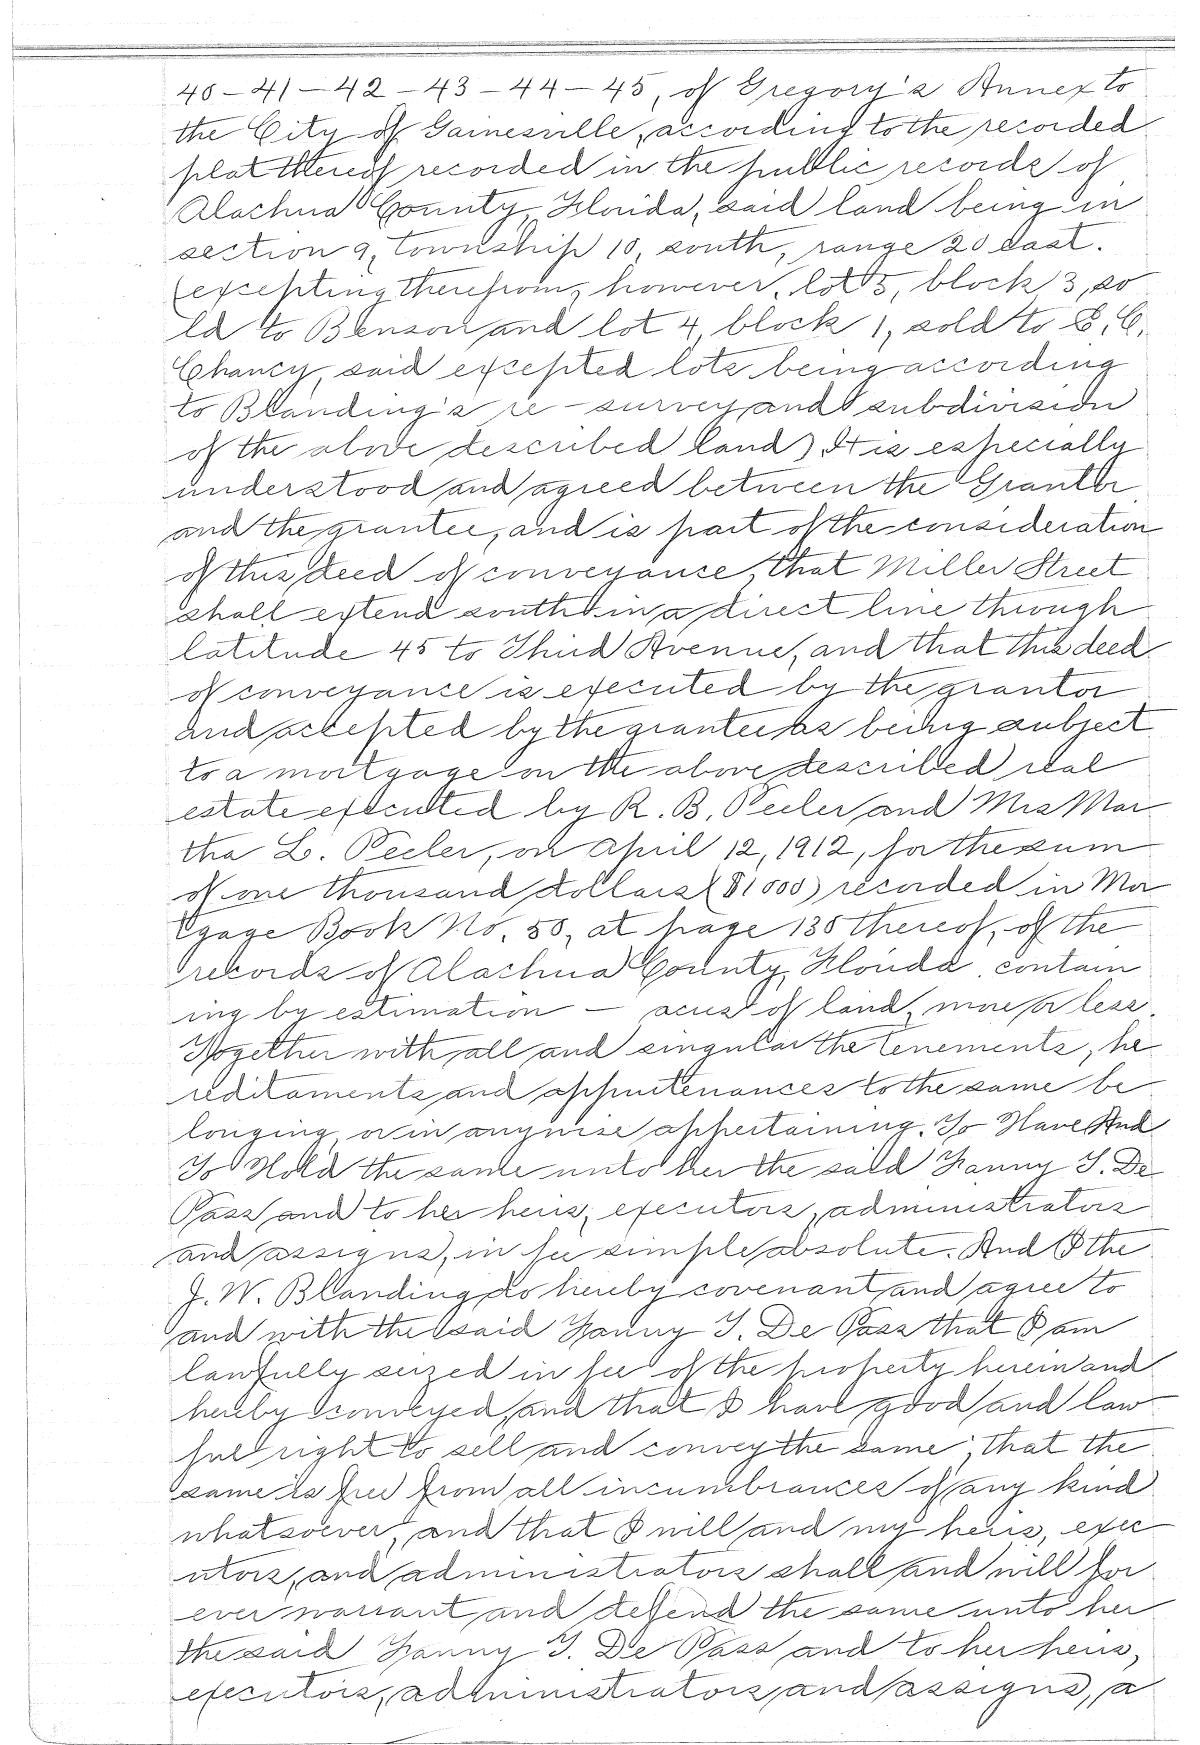 40-41-42-43-44-45, of Gregory's Annex to
the City of Gainesville, according to the recorded
plat thereof recorded in the public records of
Alachua County, Florida, said land being in
section 9, township 10, south, range 20 east.
(excepting therefrom, however, lot 5, block 3, so
ld to Benson and lot 4, block 1, sold to E. C.
Chancy, said excepted lots being according
to Blanding's re-survey and subdivision
of the above described land). It is especially
understood and agreed between the Grantor
and the grantee, and is part of the consideration
of this deed of conveyance, that Miller Street
shall extend south in a direct line through
latitude 45 to Third Avenue, and that this deed
of conveyance is executed by the grantor
and accepted by the grantee as being subject
to a mortgage on the above described real
estate executed by R. B. Peeler and Mrs Mar
tha L. Peeler, on April 12, 1912, for the sum
of one thousand dollars ($1000) recorded in Mor
tgage Book No. 50, at page 135 thereof, of the
records of Alachua County, Florida, contain
ing by estimation — acres of land, more or less.
Together with all and singular the tenements, he
reditaments and appurtenances to the same be
longing, or in anywise appertaining. To Have And
To Hold the same unto her the said Fanny T. De
Pass and to her heirs, executors, administrators
and assigns, in fee simple absolute. And I the
J. W. Blanding do hereby covenant and agree to
and with the said Fanny T. De Pass that I am
lawfully seized in fee of the property herein and
hereby conveyed, and that I have good and law
ful right to sell and convey the same; that the
same is free from all incumbrances of any kind
whatsoever, and that I will and my heirs, exec
utors, and administrators shall and will for
ever warrant and defend the same unto her
the said Fanny T. De Pass and to her heirs,
executors, administrators and assigns, a